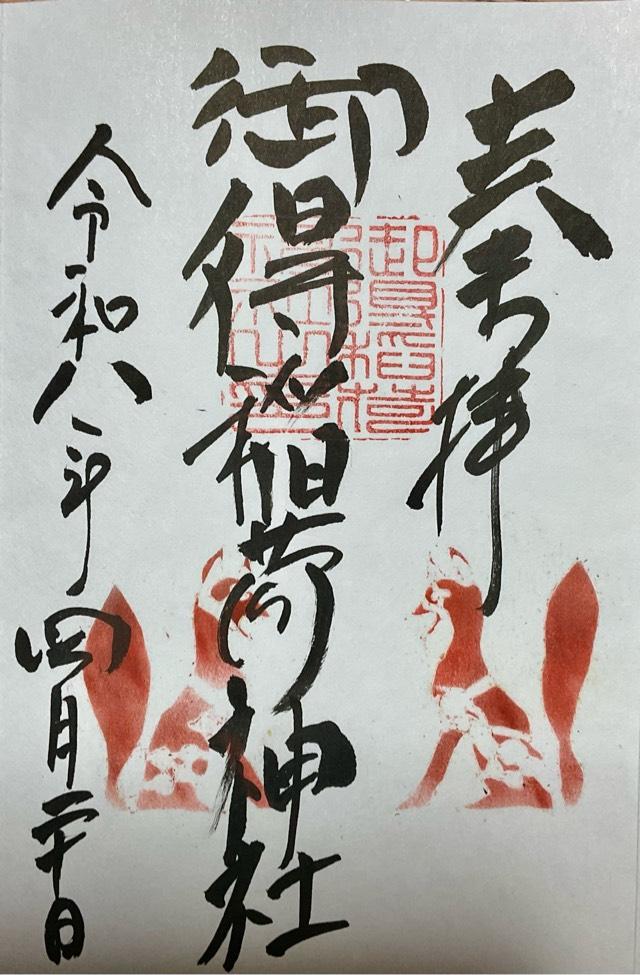 奉拝
御得稲荷神社
令和八年四月二十日